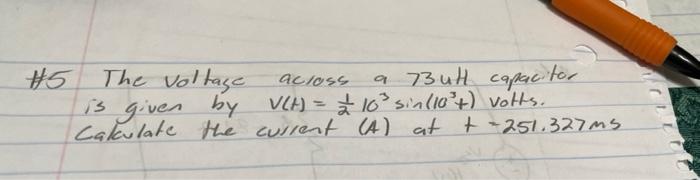 #5 The Voltage across a 73uH capacitor
is given by V(t) = 1/2 10³ sin(10³t) volts.
Calculate the current (A) at t = 251.327ms